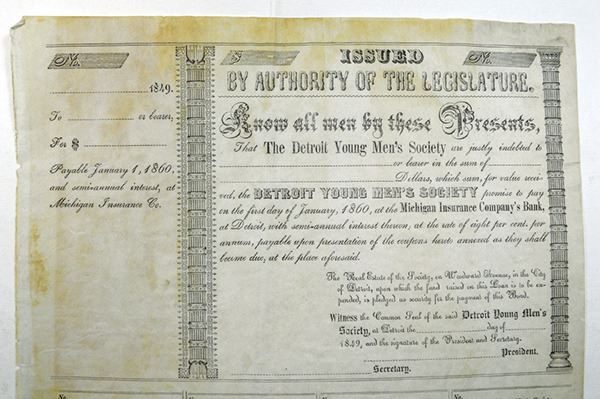 No.
1849.
To or bearer,
For $
Payable January 1, 1860,
and semi-annual interest, at
Michigan Insurance Co.
$ ISSUED No.
BY AUTHORITY OF THE LEGISLATURE.
Know all men by these Presents,
That The Detroit Young Men's Society are justly indebted to
or bearer in the sum of
Dollars, which sum, for value recei-
ved, the DETROIT YOUNG MEN'S SOCIETY promise to pay
on the first day of January, 1860, at the Michigan Insurance Company's Bank,
at Detroit, with semi-annual interest thereon, at the rate of eight per cent. per
annum, payable upon presentation of the coupons hereto annexed as they shall
become due, at the place aforesaid.
The Real Estate of the Society, on Woodward Avenue, in the City
of Detroit, upon which the fund raised on this Loan is to be ex-
pended, is pledged as security for the payment of this Bond.
Witness the Common Seal of the said Detroit Young Men's
Society, at Detroit the day of
1849, and the signature of the President and Secretary.
President.
Secretary.